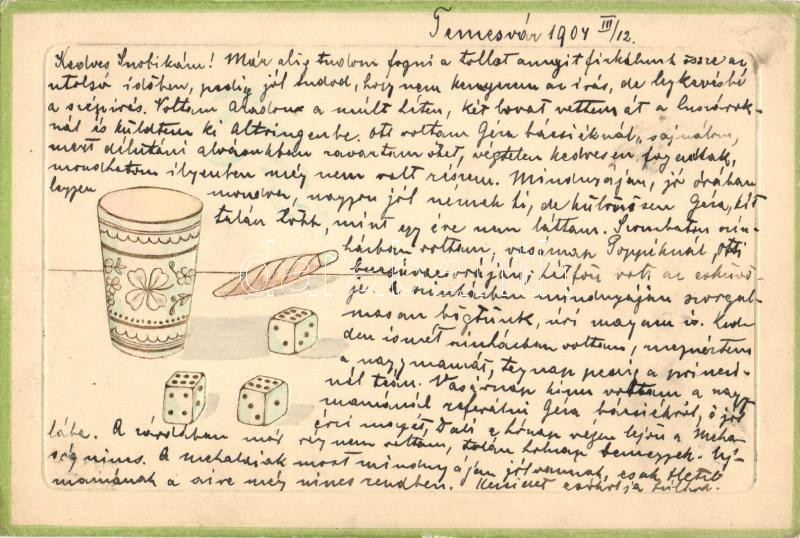 Temesvár 1904 III/12.
Kedves Snobikám! Már alig tudom fogni a tollat annyit firkáltunk össze az
utolsó időben, pedig jól tudod, hogy nem kenyerem az írás, de legkevésbé
a szépírás. Voltam Aradon a múlt héten, két lovat vettem át a huszárok-
nál és küldtem ki Altringenbe. Ott voltam Géza bácsiéknál, sajnálom,
mert délutáni alvásukban zavartam őket, végtelen kedvesen fogadtak,
mondhatom ilyenben még nem volt részem. Mindnyájan, jó órában
legyen mondva, nagyon jól néznek ki, de különösen Géza, kit
talán több, mint egy éve nem láttam. Szombaton szín-
házban voltam, vasárnap Poppéknál, Otti
hétfőn volt az esküvő-
je. A színházban mindnyájan szorgal-
masan bőgtünk, úri magam is. Ked-
den ismét színházban voltam, megnéztem
a nagymamát, tegnap pedig a
nál teán. Vasárnap kinn voltam a nagy-
mamánál referálni Géza bácsiékról, ő jól
érzi magát, a hónap végén lejön a Meha-
lába. A zárdában már rég nem voltam, talán holnap bemegyek. Új-
ság nincs. A mehalaiak most mindnyájan jól vannak, csak
mamának a szíve még nincs rendben. Kezeidet csókolja